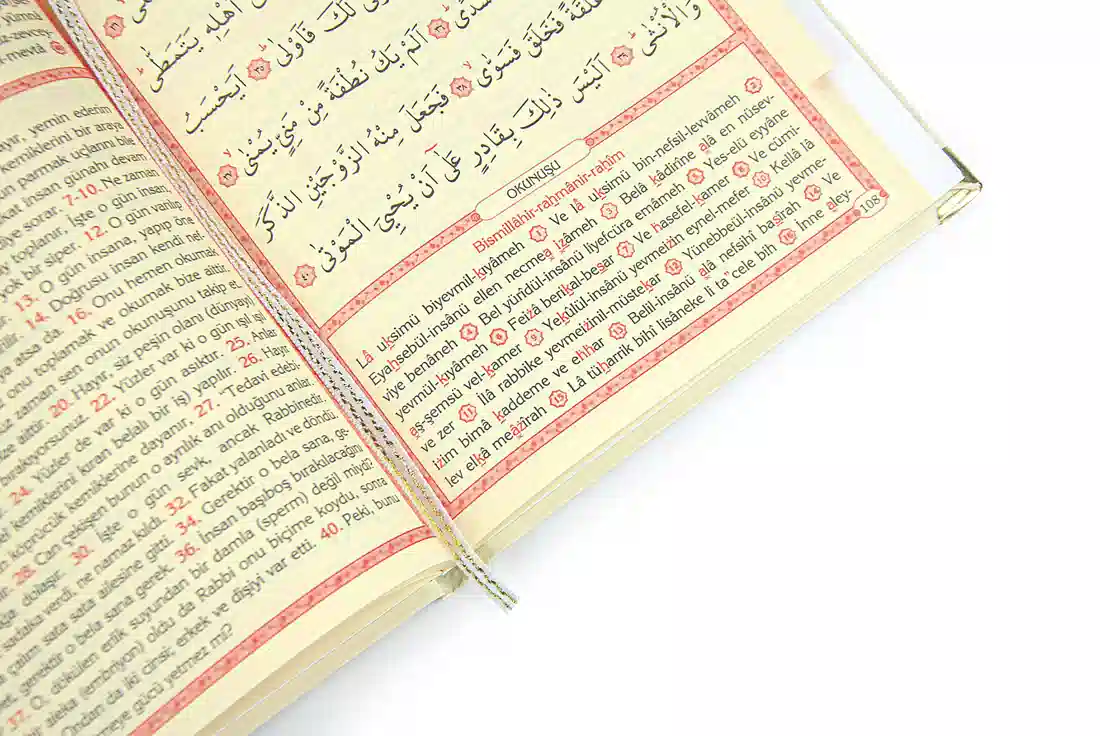 yemin ederim
kemiklerini bir araya
parmak uçlarını bile
insan günahı devam
diye sorar. 7-10. Ne zaman
toplanır, İşte o gün insan,
yok bir siper. 12. O gün varılıp
13. O gün insana, yapıp öne
14. Doğrusu insan kendi nef-
atsa da. 16. Onu hemen okumak
onu toplamak ve okumak bize aittir.
zaman sen onun okunuşunu takip et.
aittir. 20. Hayır, siz peşin olanı (dünyayı)
bırakıyorsunuz. 22. Yüzler var ki o gün ışıl ışıl
24. Yüzler de var ki o gün asıktır. 25. Anlar
kemiklerini kıran belalı bir iş) yapılır. 26. Hayır
köprücük kemiklerine dayanır, 27. "Tedavi edebi-
28. Can çekişen bunun o ayrılık anı olduğunu anlar.
dolaşır. 30. İşte o gün sevk, ancak Rabbinedir.
sadaka verdi, ne namaz kıldı. 32. Fakat yalanladı ve döndü.
çalım sata sata ailesine gitti. 34. Gerektir o bela sana, ge-
gerektir o bela sana gerek. 36. İnsan başıboş bırakılacağını
37. O, dökülen erlik suyundan bir damla (sperm) değil miydi?
bir aleka (embriyon) oldu da Rabbi onu biçime koydu, sonra
Ondan da iki cinsi, erkek ve dişiyi var etti. 40. Peki, bunu
gücü yetmez mi?
اَهْلِهٖ يَتَمَطّٰى
لَكَ فَاَوْلٰى ٣٥ اَيَحْسَبُ
سُدًى ٣٦ اَلَمْ يَكُ نُطْفَةً مِنْ مَنِيٍّ يُمْنٰى ٣٧
فَخَلَقَ فَسَوّٰى ٣٨ فَجَعَلَ مِنْهُ الزَّوْجَيْنِ الذَّكَرَ
وَالْاُنْثٰى ٣٩ اَلَيْسَ ذٰلِكَ بِقَادِرٍ عَلٰٓى اَنْ يُحْيِىَ الْمَوْتٰى ٤٠
OKUNUŞU
Bismillâhir-rahmânir-rahîm
Lâ uksimü biyevmil-kıyâmeh 1 Ve lâ uksimü bin-nefsil-levvâmeh 2
Eyahsebül-insânü ellen necmea ızâmeh 3 Belâ kâdirîne alâ en nüsev-
viye benâneh 4 Bel yürîdül-insânü liyefcüra emâmeh 5 Yes-elü eyyâne
yevmül-kıyâmeh 6 Feizâ berikal-besar 7 Ve hasefel-kamer 8 Ve cümi-
aş-şemsü vel-kamer 9 Yekûlül-insânü yevmeizin eynel-mefer 10 Kellâ lâ
ve zer 11 ilâ rabbike yevmeizinil-müstekar 12 Yünebbeül-insânü yevme-
izim bimâ kaddeme ve ehhar 13 Belil-insânü alâ nefsihî basîrah 14 Ve
lev elkâ meâzîrah 15 Lâ tüharrik bihî lisâneke li ta"cele bih 16 İnne aley-
108